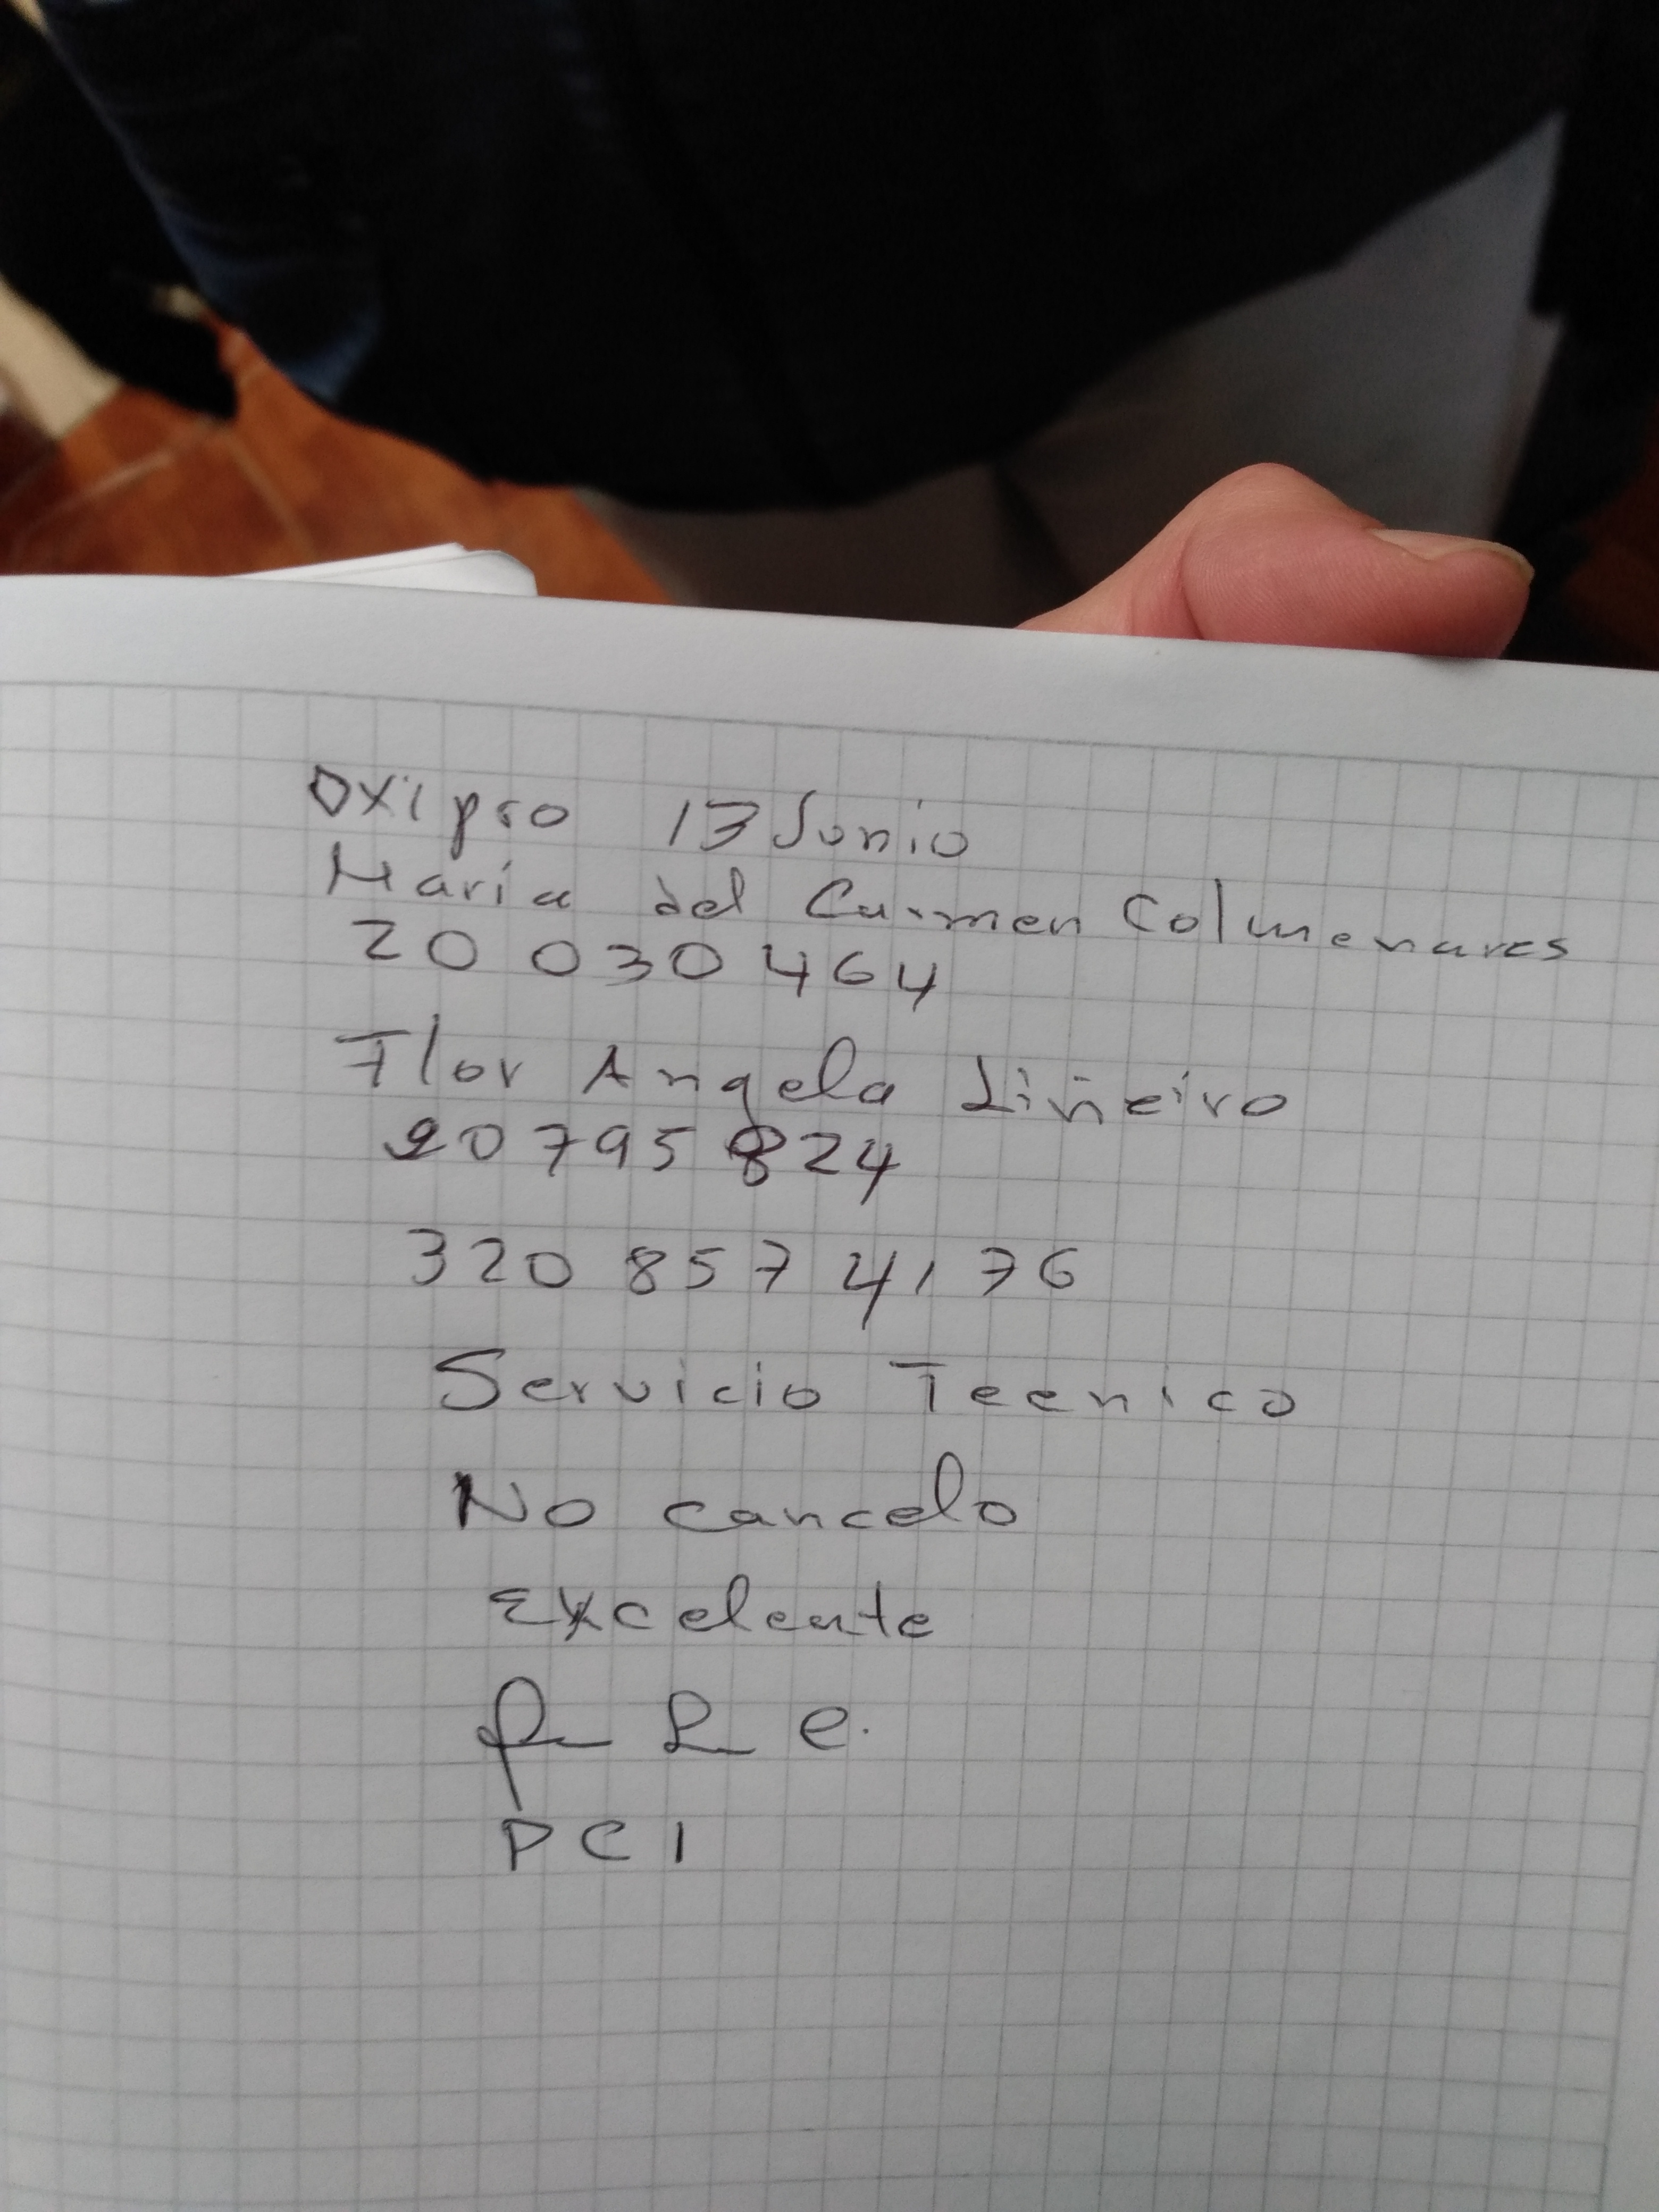 Oxipro 13 Junio
Maria del Carmen Colmenares
20 030 464
Flor Angela Liñeiro
20 795 824
320 857 4176
Servicio Tecnico
No cancelo
Excelente
PCI